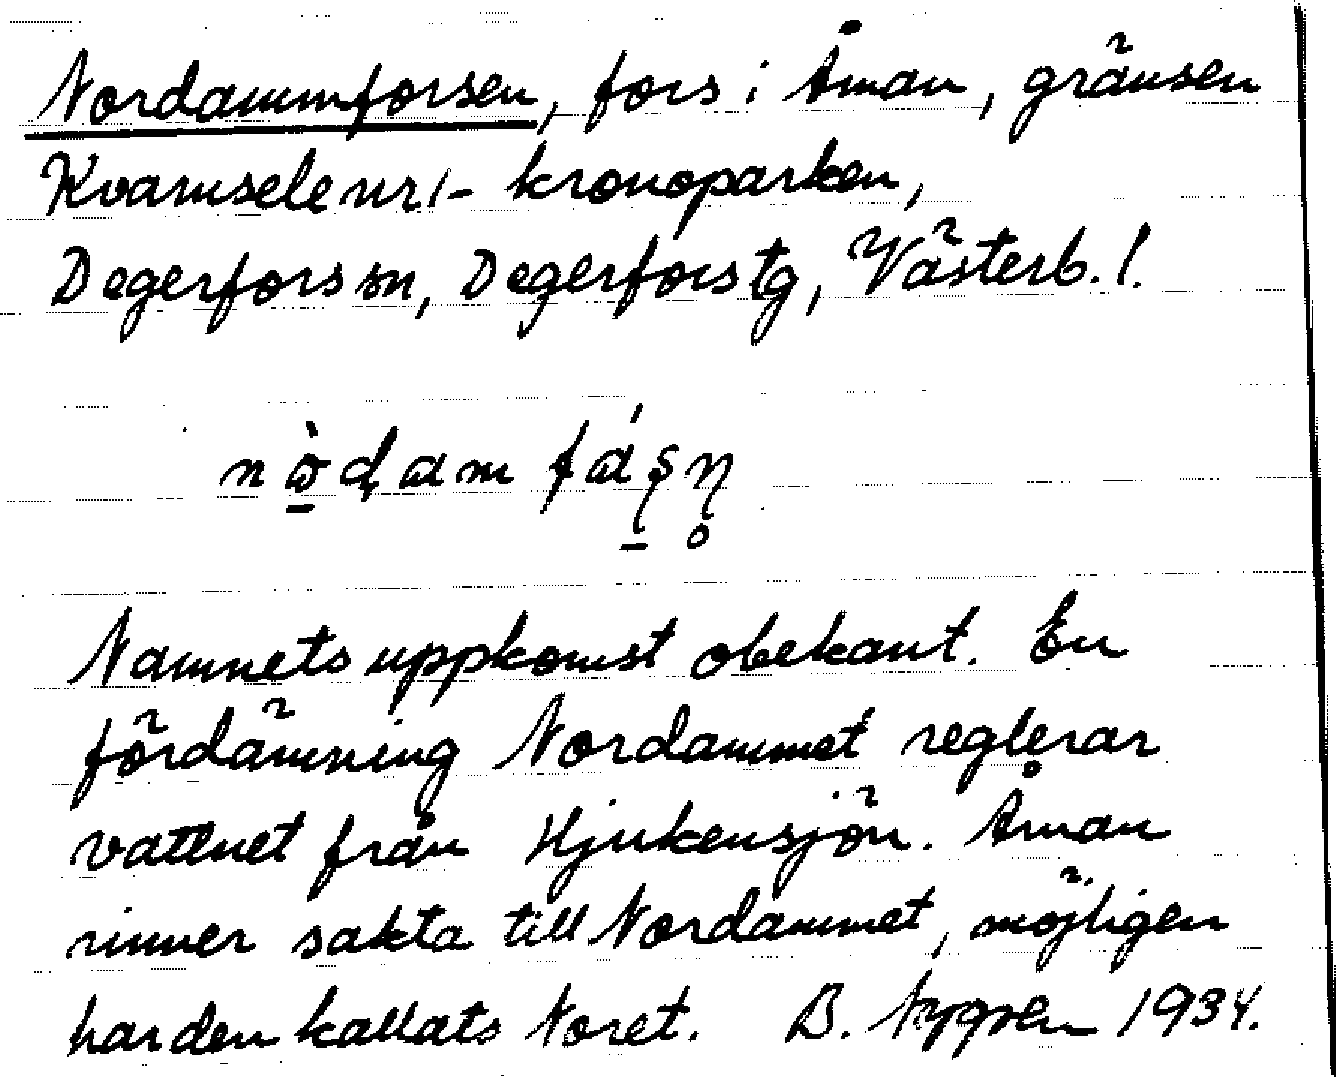 Nordammforsen, fors i Åman, gränsen
Kvarnsele nr 1 - kronoparken,
Degerfors sn, Degerfors tg, Västerb. l.
nò̱ḍam fá̱ṣṇ̥
Namnets uppkomst obekant. En
fördämning Nordammet reglerar
vattnet från Hjukensjön. Åman
rinner sakta till Nordammet, möjligen
har den kallats Noret. B. Nygren 1934.